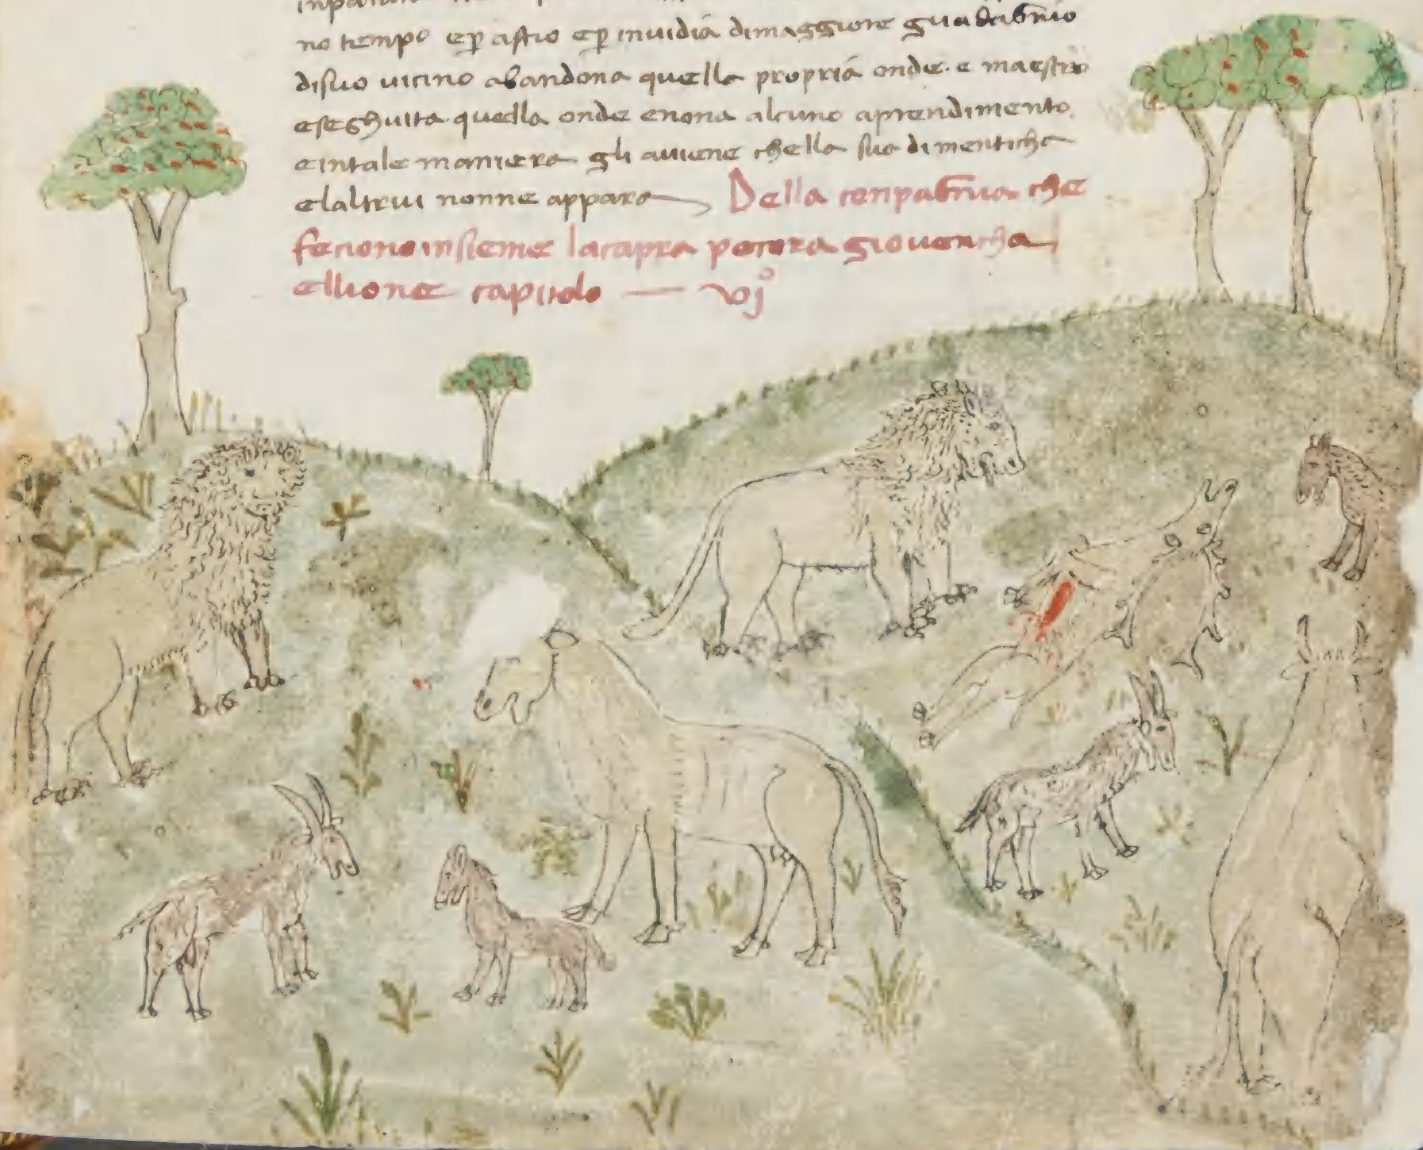 no tempo ep astio ep inuidia dimaggiore guadabnio
disuo uicino abandona quella propria onde e maestro
eseghuita quella onde enona alcuno aprendimento.
eintale maniera gli auiene chella sua dimenticha
elaltrui nonne appara Della conpabnia che
feciono insieme lacapra pecora giouencha
ellione capitolo — vjº